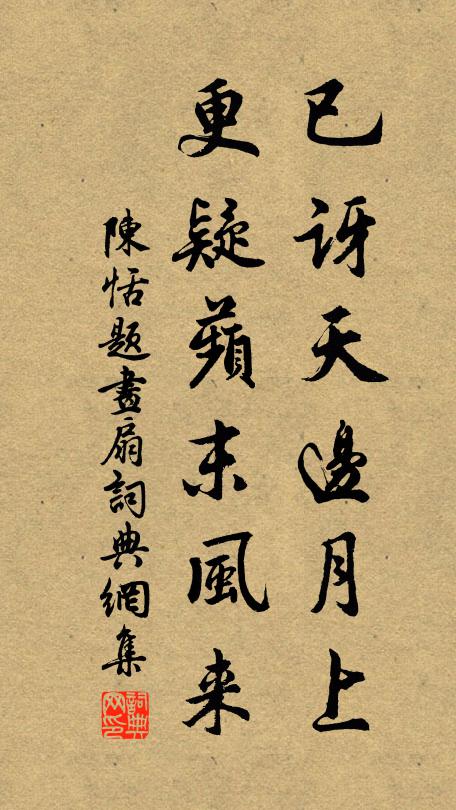 已訝天邊月上
更疑蘋末風来
陳恬題畫扇詞典網集
詞典網印